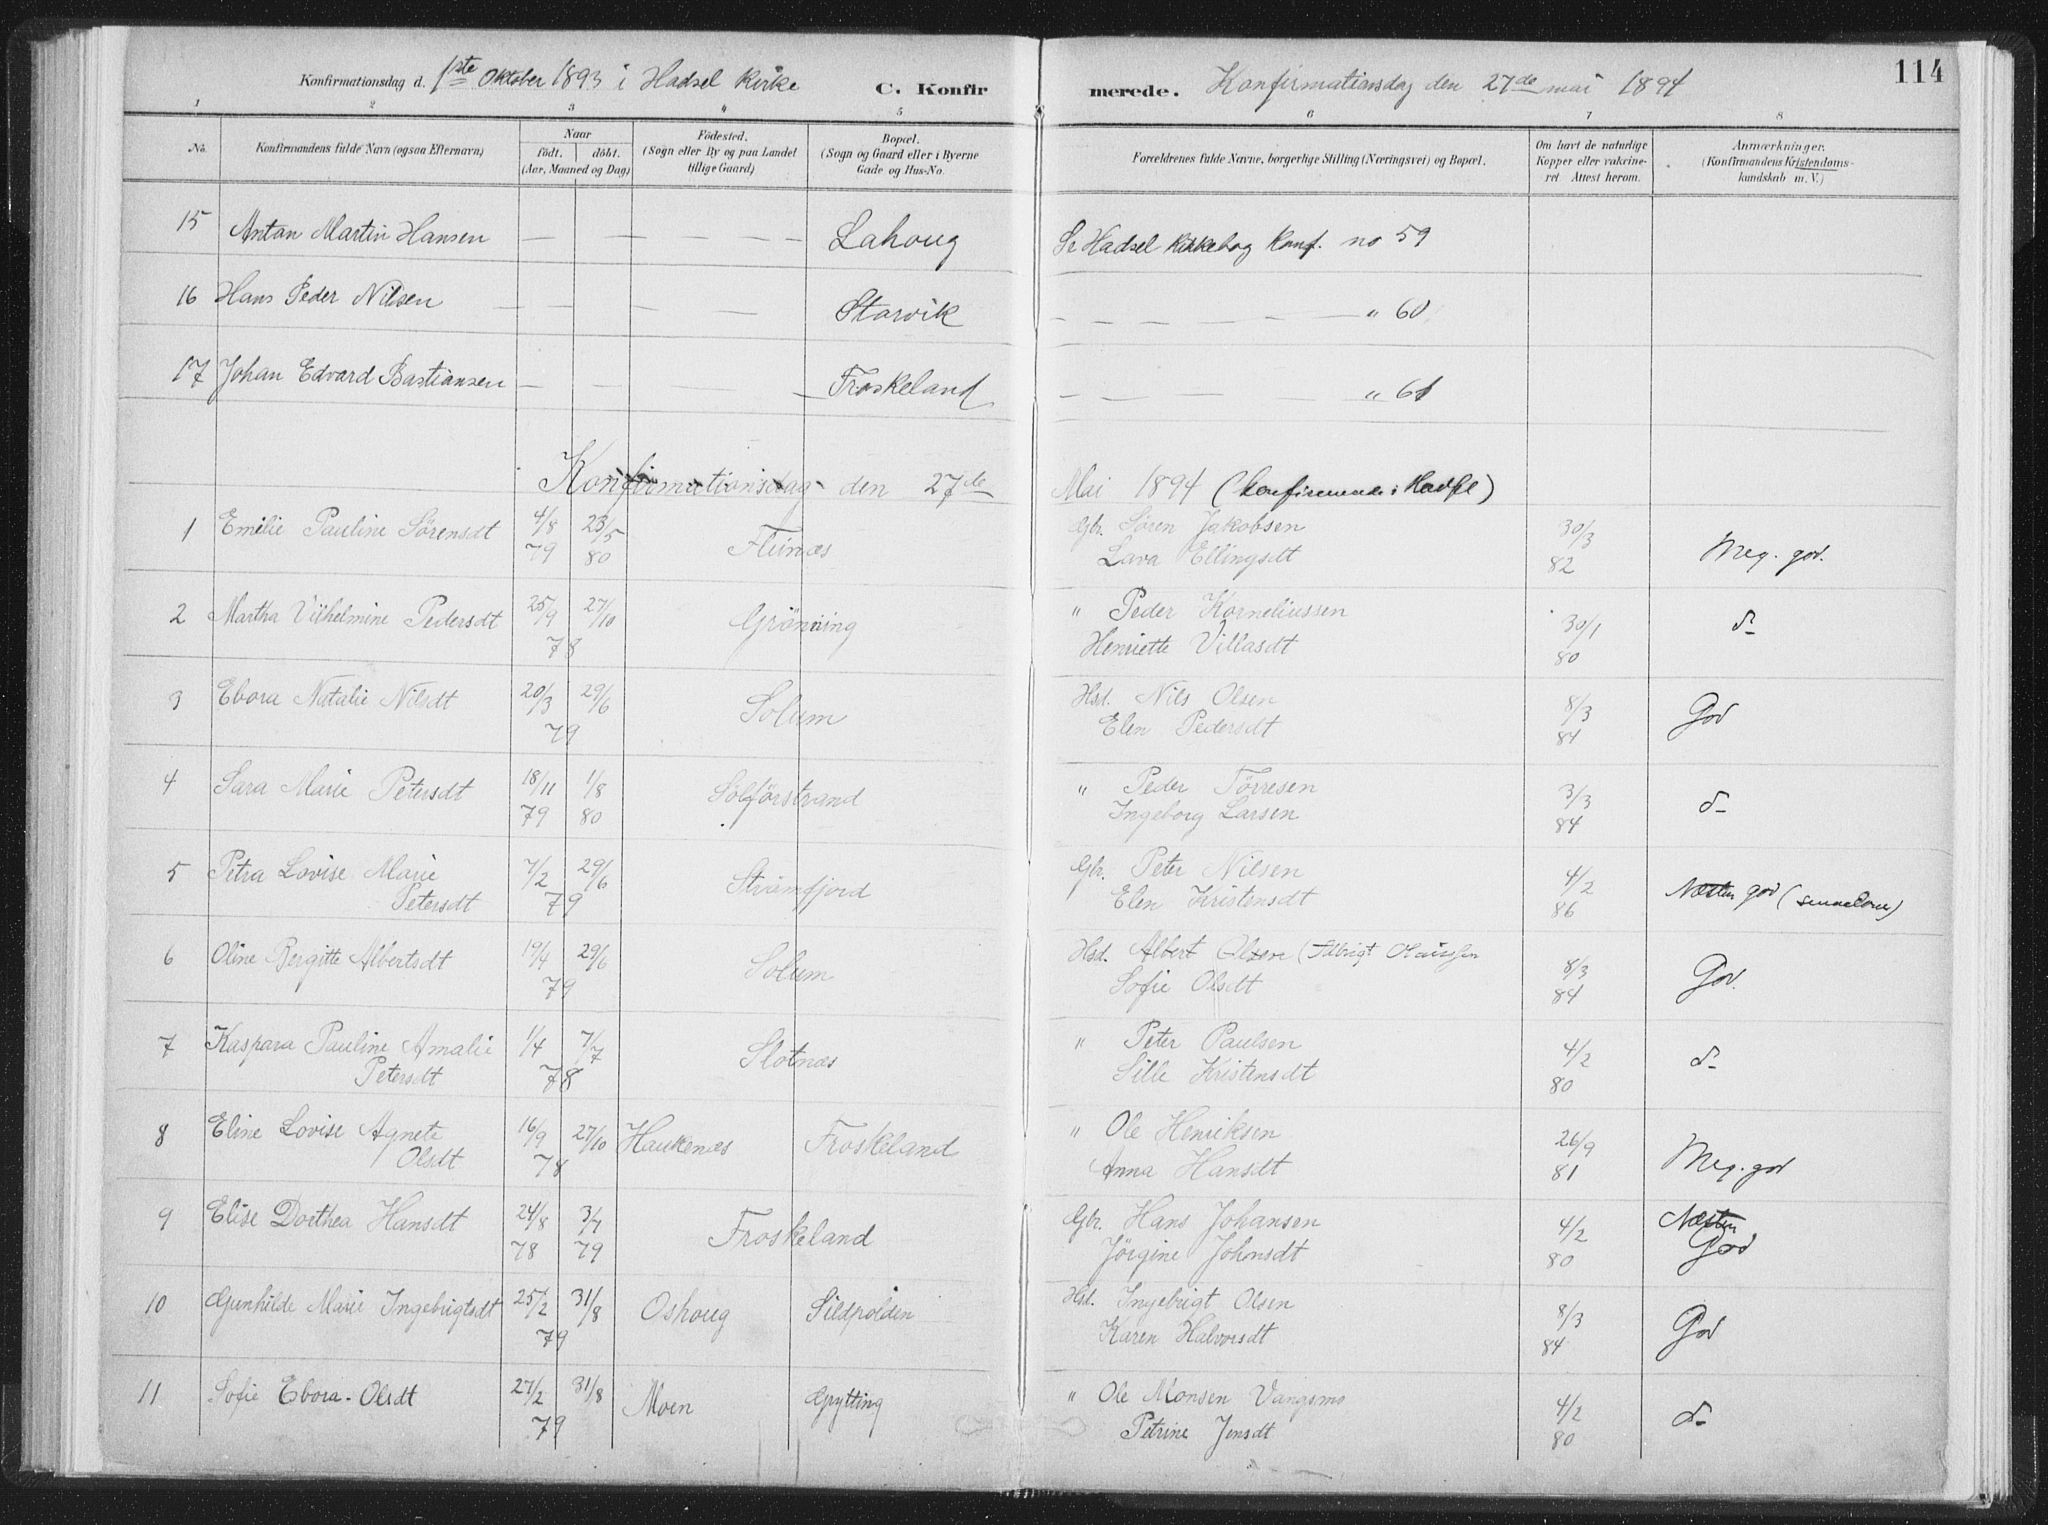 Konfirmationsdag d. 1ste Oktober 1893 i Hadsel Kirke C. Konfirmerede. Konfirmationsdag den 27de mai 1894 114
1 2 3 4 5 6 7 8
No. Konfirmandens fulde Navn (ogsaa Efternavn) Naar födt. döbt. (Aar, Maaned og Dag) Födested. (Sogn eller By og paa Landet tillige Gaard) Bopæl. (Sogn og Gaard eller i Byerne Gade og Hus-No. Forældrenes fulde Navne, borgerlige Stilling (Næringsvei) og Bopæl. Om havt de naturlige Kopper eller vakcineret. Attest herom. Anmærkninger. (Konfirmandens Kristendomskundskab m. V.)
15 Anton Martin Hansen — — — — — Lahoug Se Hadsel Kirkebog Konf. no 59
16 Hans Peder Nilsen — — — — Storvik — — — — — — „ 60
17 Johan Edvard Bastiansen — — — — — Froskeland — — — — — „ 61
Konfirmationsdag den 27de Mai 1894 (konfirmerede i Hadsel)
1 Emilie Pauline Sørensdt 4/8 23/5 Flunæs Gbr. Søren Jakobsen 30/3 Meg. god.
79 80 Lava Ellingsdt 82
2 Martha Vilhelmine Pedersdt 25/9 27/10 Grönning „ Peder Korneliussen 30/1 d-
78 Henriette Villasdt 80
3 Ebora Natalie Nilsdt 20/3 29/6 Solum Hsd. Nils Olsen 8/3 God
79 Elen Pedersdt 84
4 Sara Marie Petersdt 18/11 1/8 Solförstrand „ Peder Törresen 3/3 d-
79 80 Ingeborg Larsen 84
5 Petra Lovise Marie 7/2 29/6 Strömfjord Gbr. Peter Nilsen 4/2 Næsten god
Petersdt 79 Elen Kristensdt 86
6 Oline Bergitte Albertsdt 19/4 29/6 Solum Hsd. Albert Olsen 8/3 God.
79 Sofie Olsdt 84
7 Kaspara Pauline Amalie 1/4 7/7 Slotnæs „ Peter Paulsen 4/2 d-
Petersdt 78 Sille Kristensdt 80
8 Eline Lovise Agnete 16/9 27/10 Haukenæs Froskeland „ Ole Henriksen 26/9 Meg. god
Olsdt 78 Anna Hansdt 81
9 Elise Dorthea Hansdt 24/8 3/7 Froskeland Gbr. Hans Johansen 4/2 Næsten
78 79 Jörgine Johansdt 80 God
10 Gunhilde Marie Ingebrigtsdt 25/2 31/8 Oshoug Sildpolden Hsd. Ingebrigt Olsen 8/3 God
79 Karen Halvorsdt 84
11 Sofie Ebora Olsdt 27/2 31/8 Moen Grytting „ Ole Monsen Vangsmo 4/2 d-
79 Petrine Jensdt 80